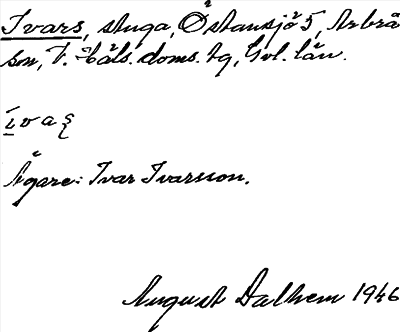 Ivars, stuga, Östansjö 5, Arbrå
sn, V. Häls. doms. tg, Gvl. län.
ivaş
Ägare: Ivar Ivarsson.
August Dalhem 1946